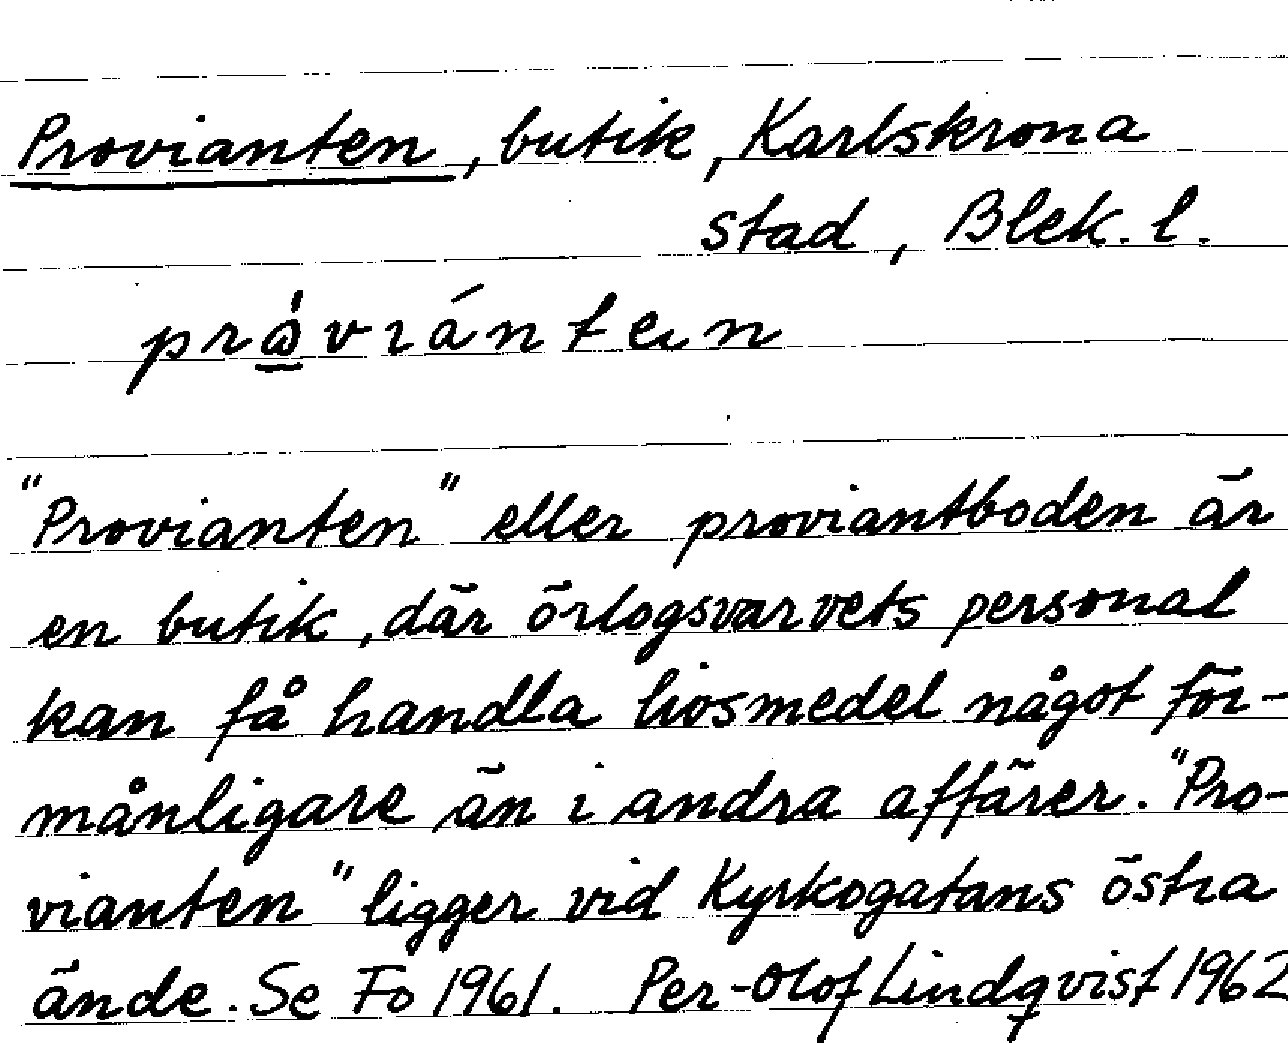 Provianten, butik, Karlskrona
stad, Blek. l.
"Provianten" eller proviantboden är
en butik, där örlogsvarvets personal
kan få handla livsmedel något för-
månligare än i andra affärer. "Pro-
vianten" ligger vid Kyrkogatans östra
ände. Se Fo 1961. Per-Olof Lindqvist 1962